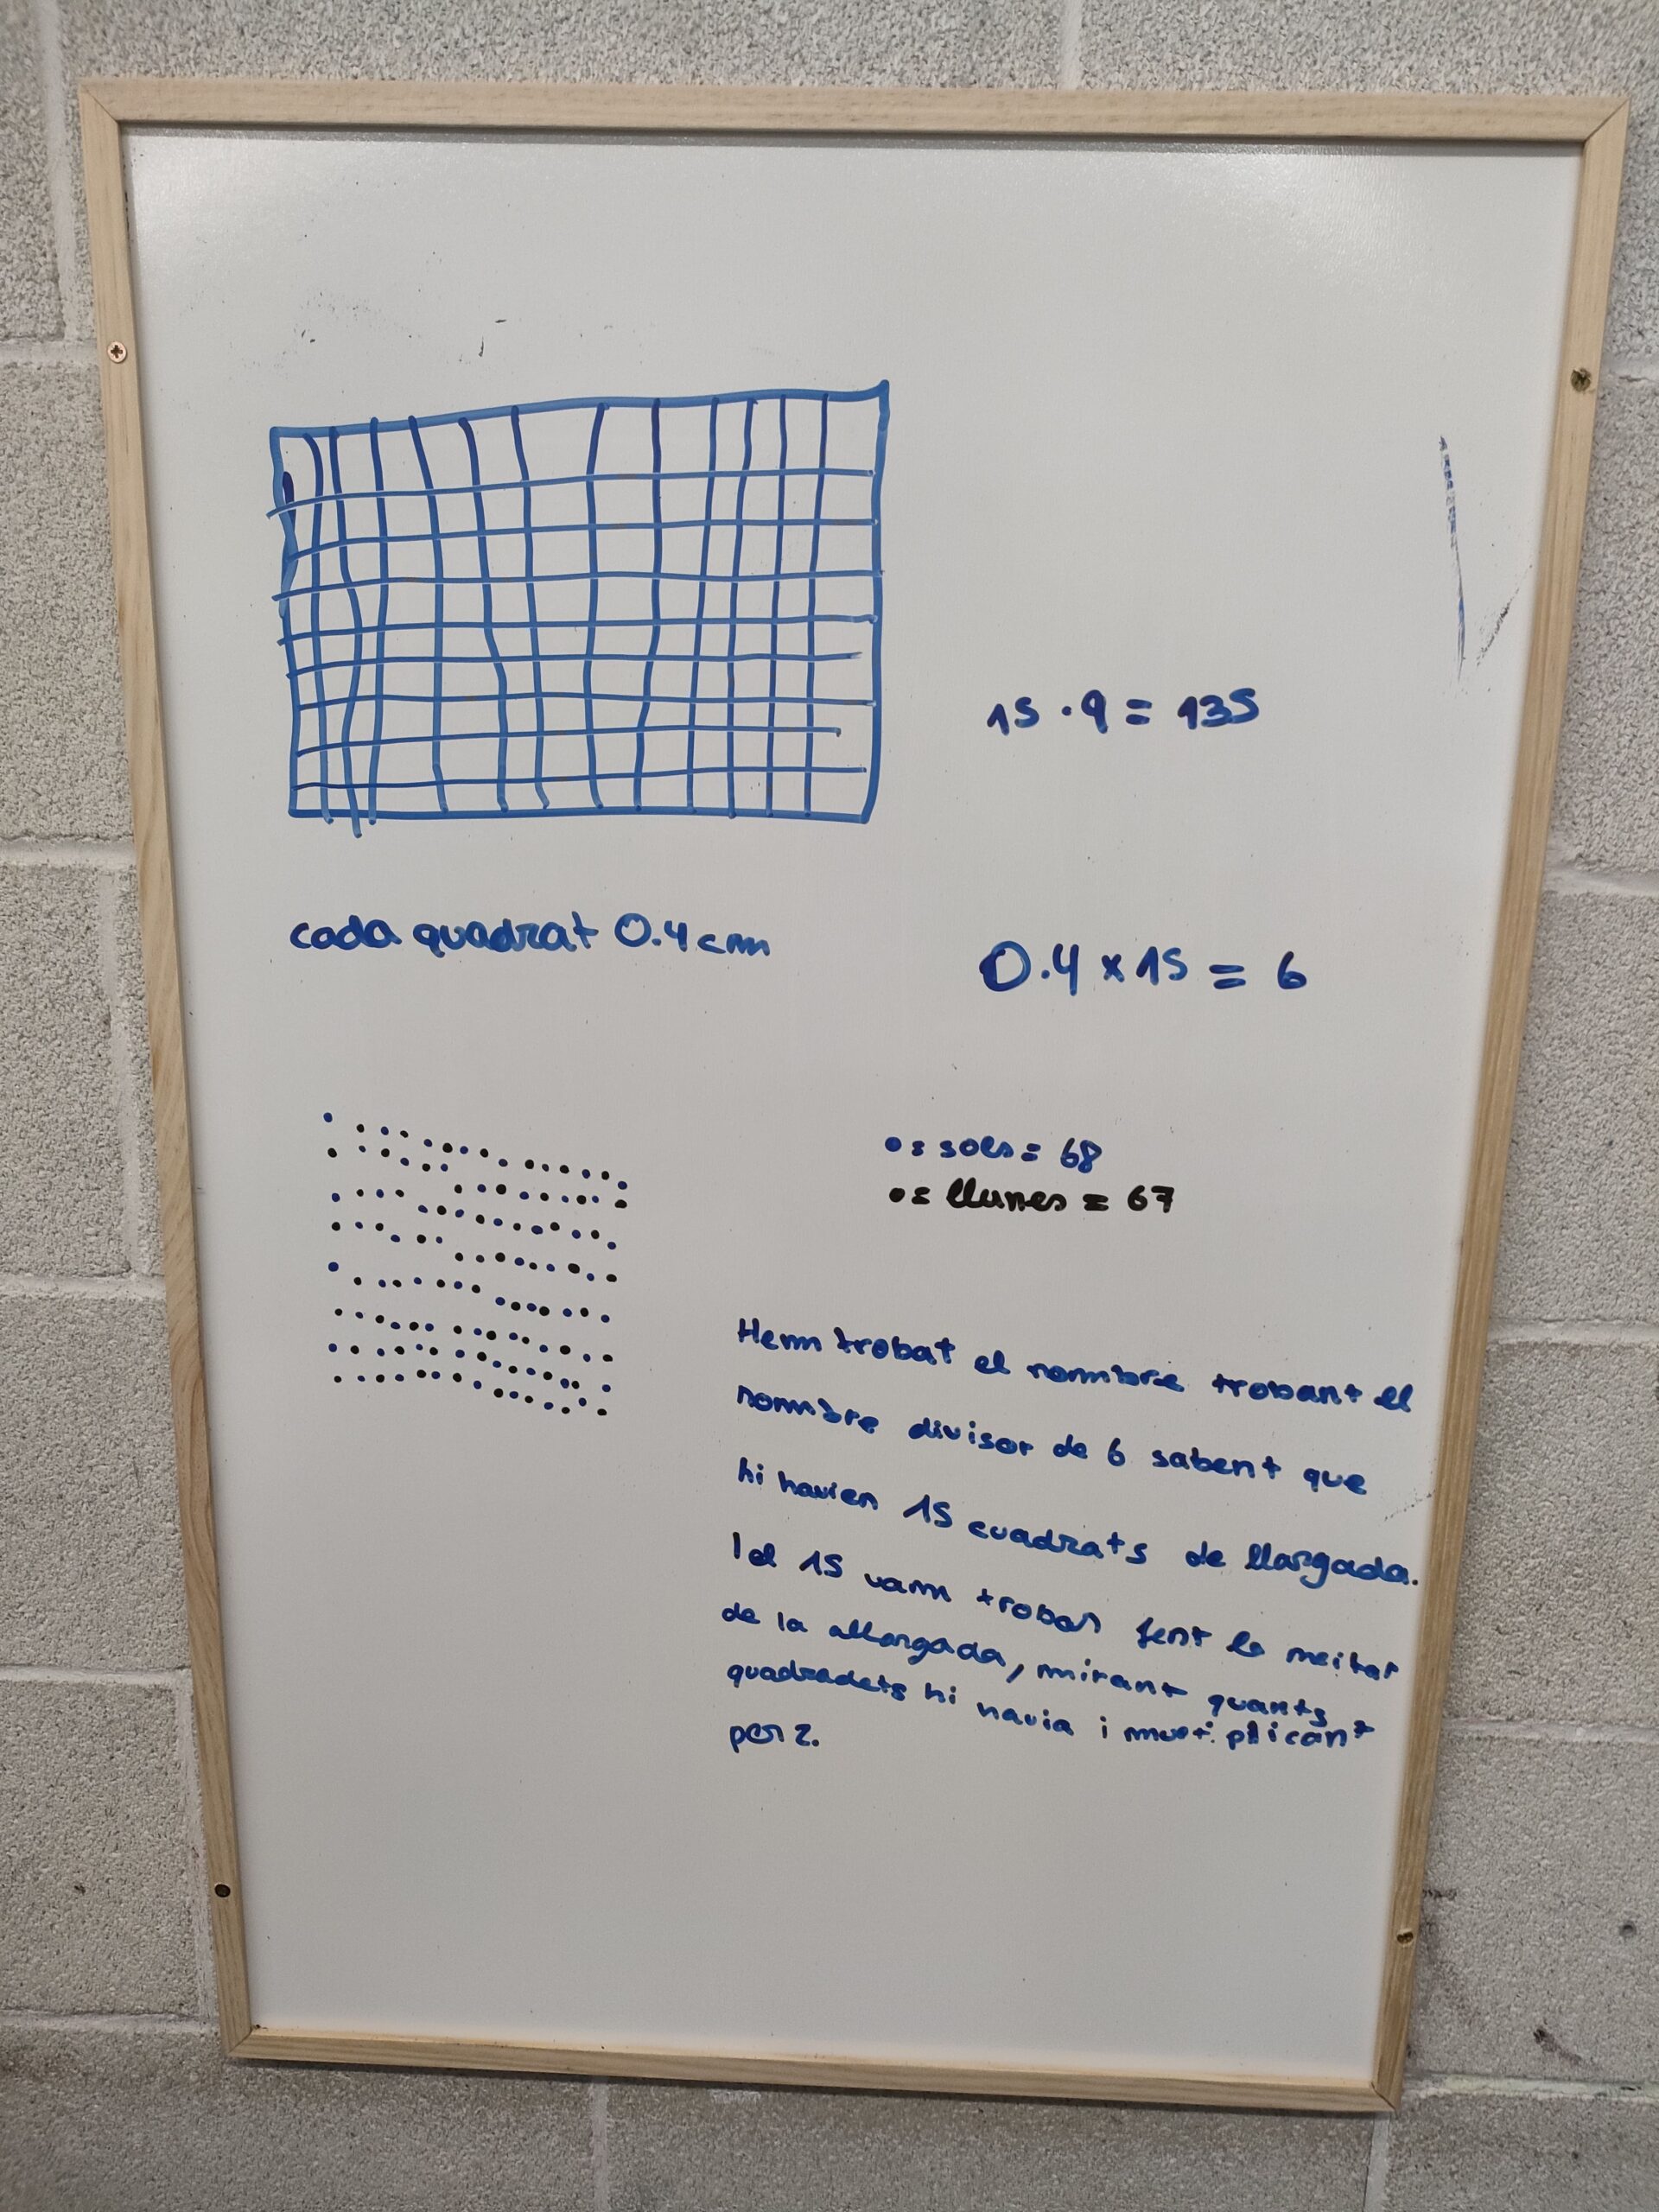 15 · 9 = 135
cada quadrat 0.4 cm
0.4 x 15 = 6
• = sols = 68
• = llunes = 67
Hem trobat el nombre trobant el
nombre divisor de 6 sabent que
hi havien 15 cuadrats de llargada.
I el 15 vam trobar fent la meitat
de la allargada, mirant quants
quadradets hi havia i multiplicant
per 2.